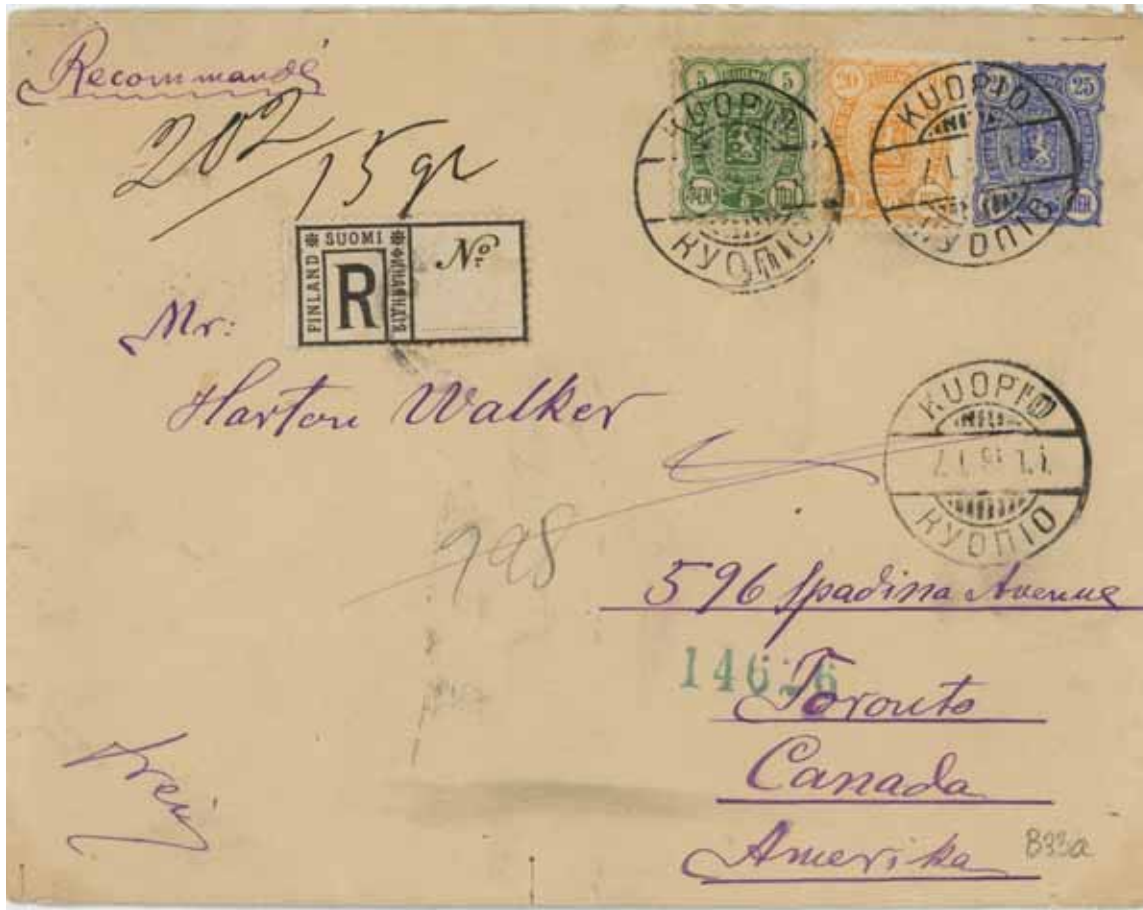 Recommandé
202/15 gr
5 5
20
25 25
ПЕН ПЕН
ПЕН
KUOPIO
КУОПІО
KUOPIO
КУОПІО
FINLAND * SUOMI * ФИНЛЯНДІЯ
R
No
Mr:
Harton Walker
KUOPIO
7.1.
КУОПІО
998
596 Spadina Avenue
Toronto
Canada
Amerika
B33a